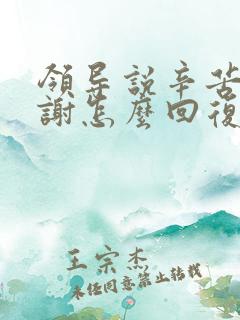 領导説辛苦
謝怎麼回復
王宗杰
未经同意禁止转载